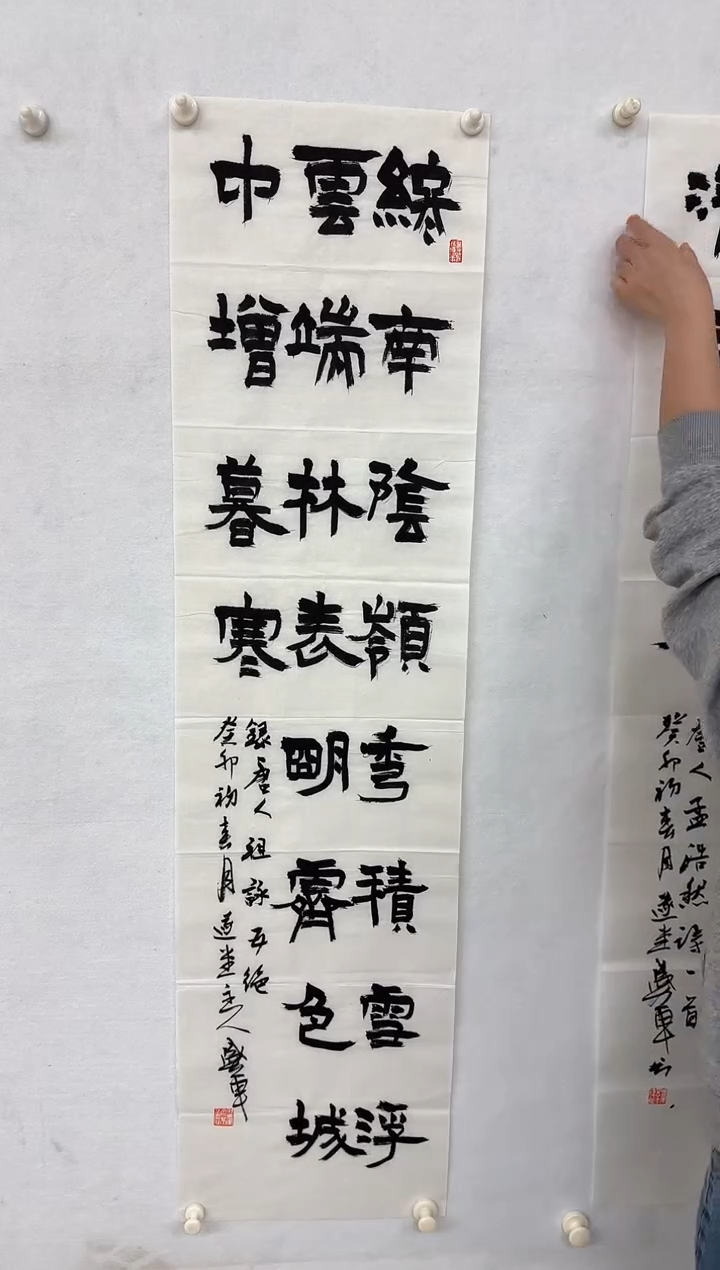 終南陰嶺秀積雪浮
雲端林表明霽色城
中增暮寒
錄唐人祖詠五絕
癸卯初春月堂主人
唐人孟浩然詩一首
癸卯初春月堂